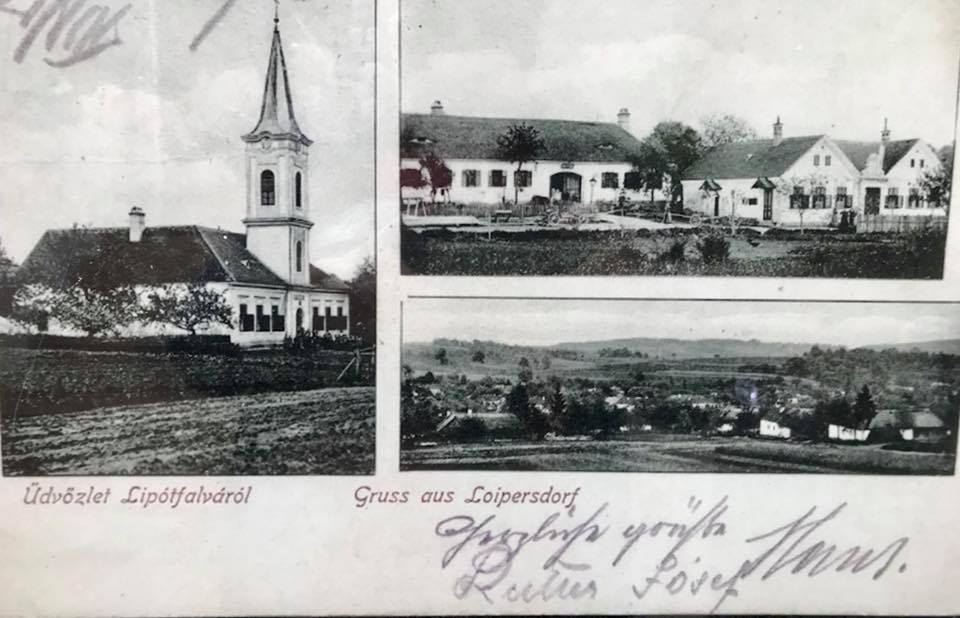 Üdvözlet Lipótfalváról
Gruss aus Loipersdorf
Herzliche grüße Hans.
József